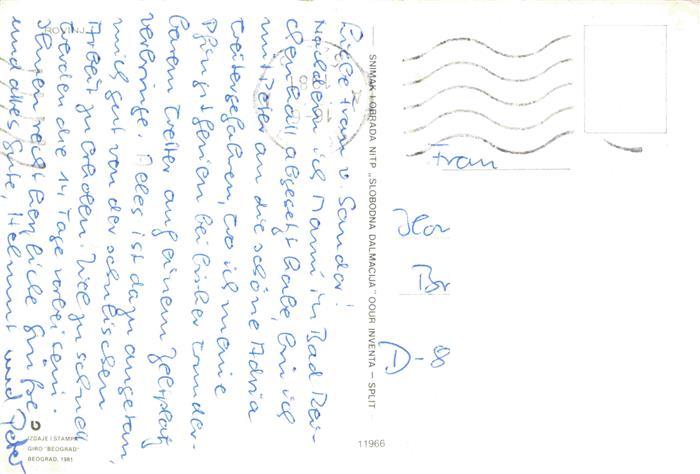 ROVINJ
Liebe Frau v. Sandor!
Nachdem ich Mami in Bad Rei-
chenhall abgesetzt habe, bin ich
mit Peter an die schöne Adria
weitergefahren, wo ich meine
Pfingstferien bei bisher wunder-
barem Wetter auf einem Zeltplatz
verbringe. Alles ist dazu angetan,
mich gut von der schulischen
Arbeit zu erholen. Viel zu schnell
werden die 14 Tage vorbei sein.
Ihnen recht herzliche Grüße
und alles Gute, Helmut und Peter
SNIMAK I OBRADA NITP „SLOBODNA DALMACIJA" OOUR INVENTA – SPLIT
Frau
Br
D-8
IZDAJE I ŠTAMPA
GIRO "BEOGRAD"
BEOGRAD, 1981
11966